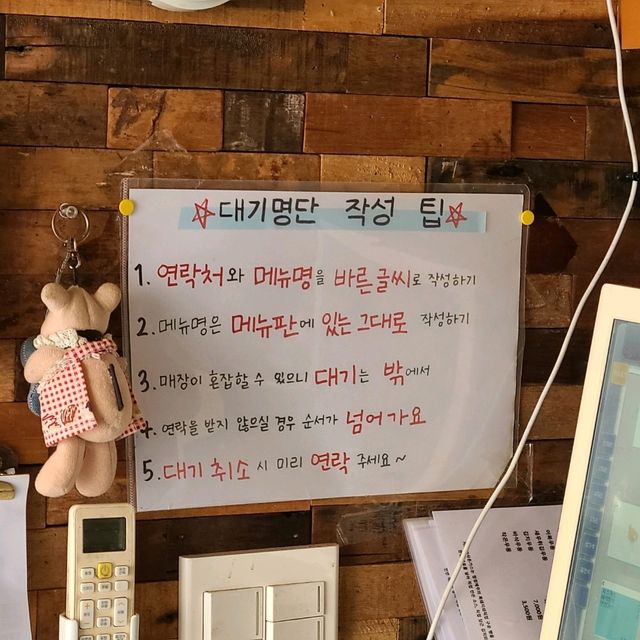 ☆대기명단 작성 팁☆
1. 연락처와 메뉴명을 바른글씨로 작성하기
2. 메뉴명은 메뉴판에 있는 그대로 작성하기
3. 매장이 혼잡할 수 있으니 대기는 밖에서
4. 연락을 받지 않으실 경우 순서가 넘어가요
5. 대기 취소 시 미리 연락 주세요~